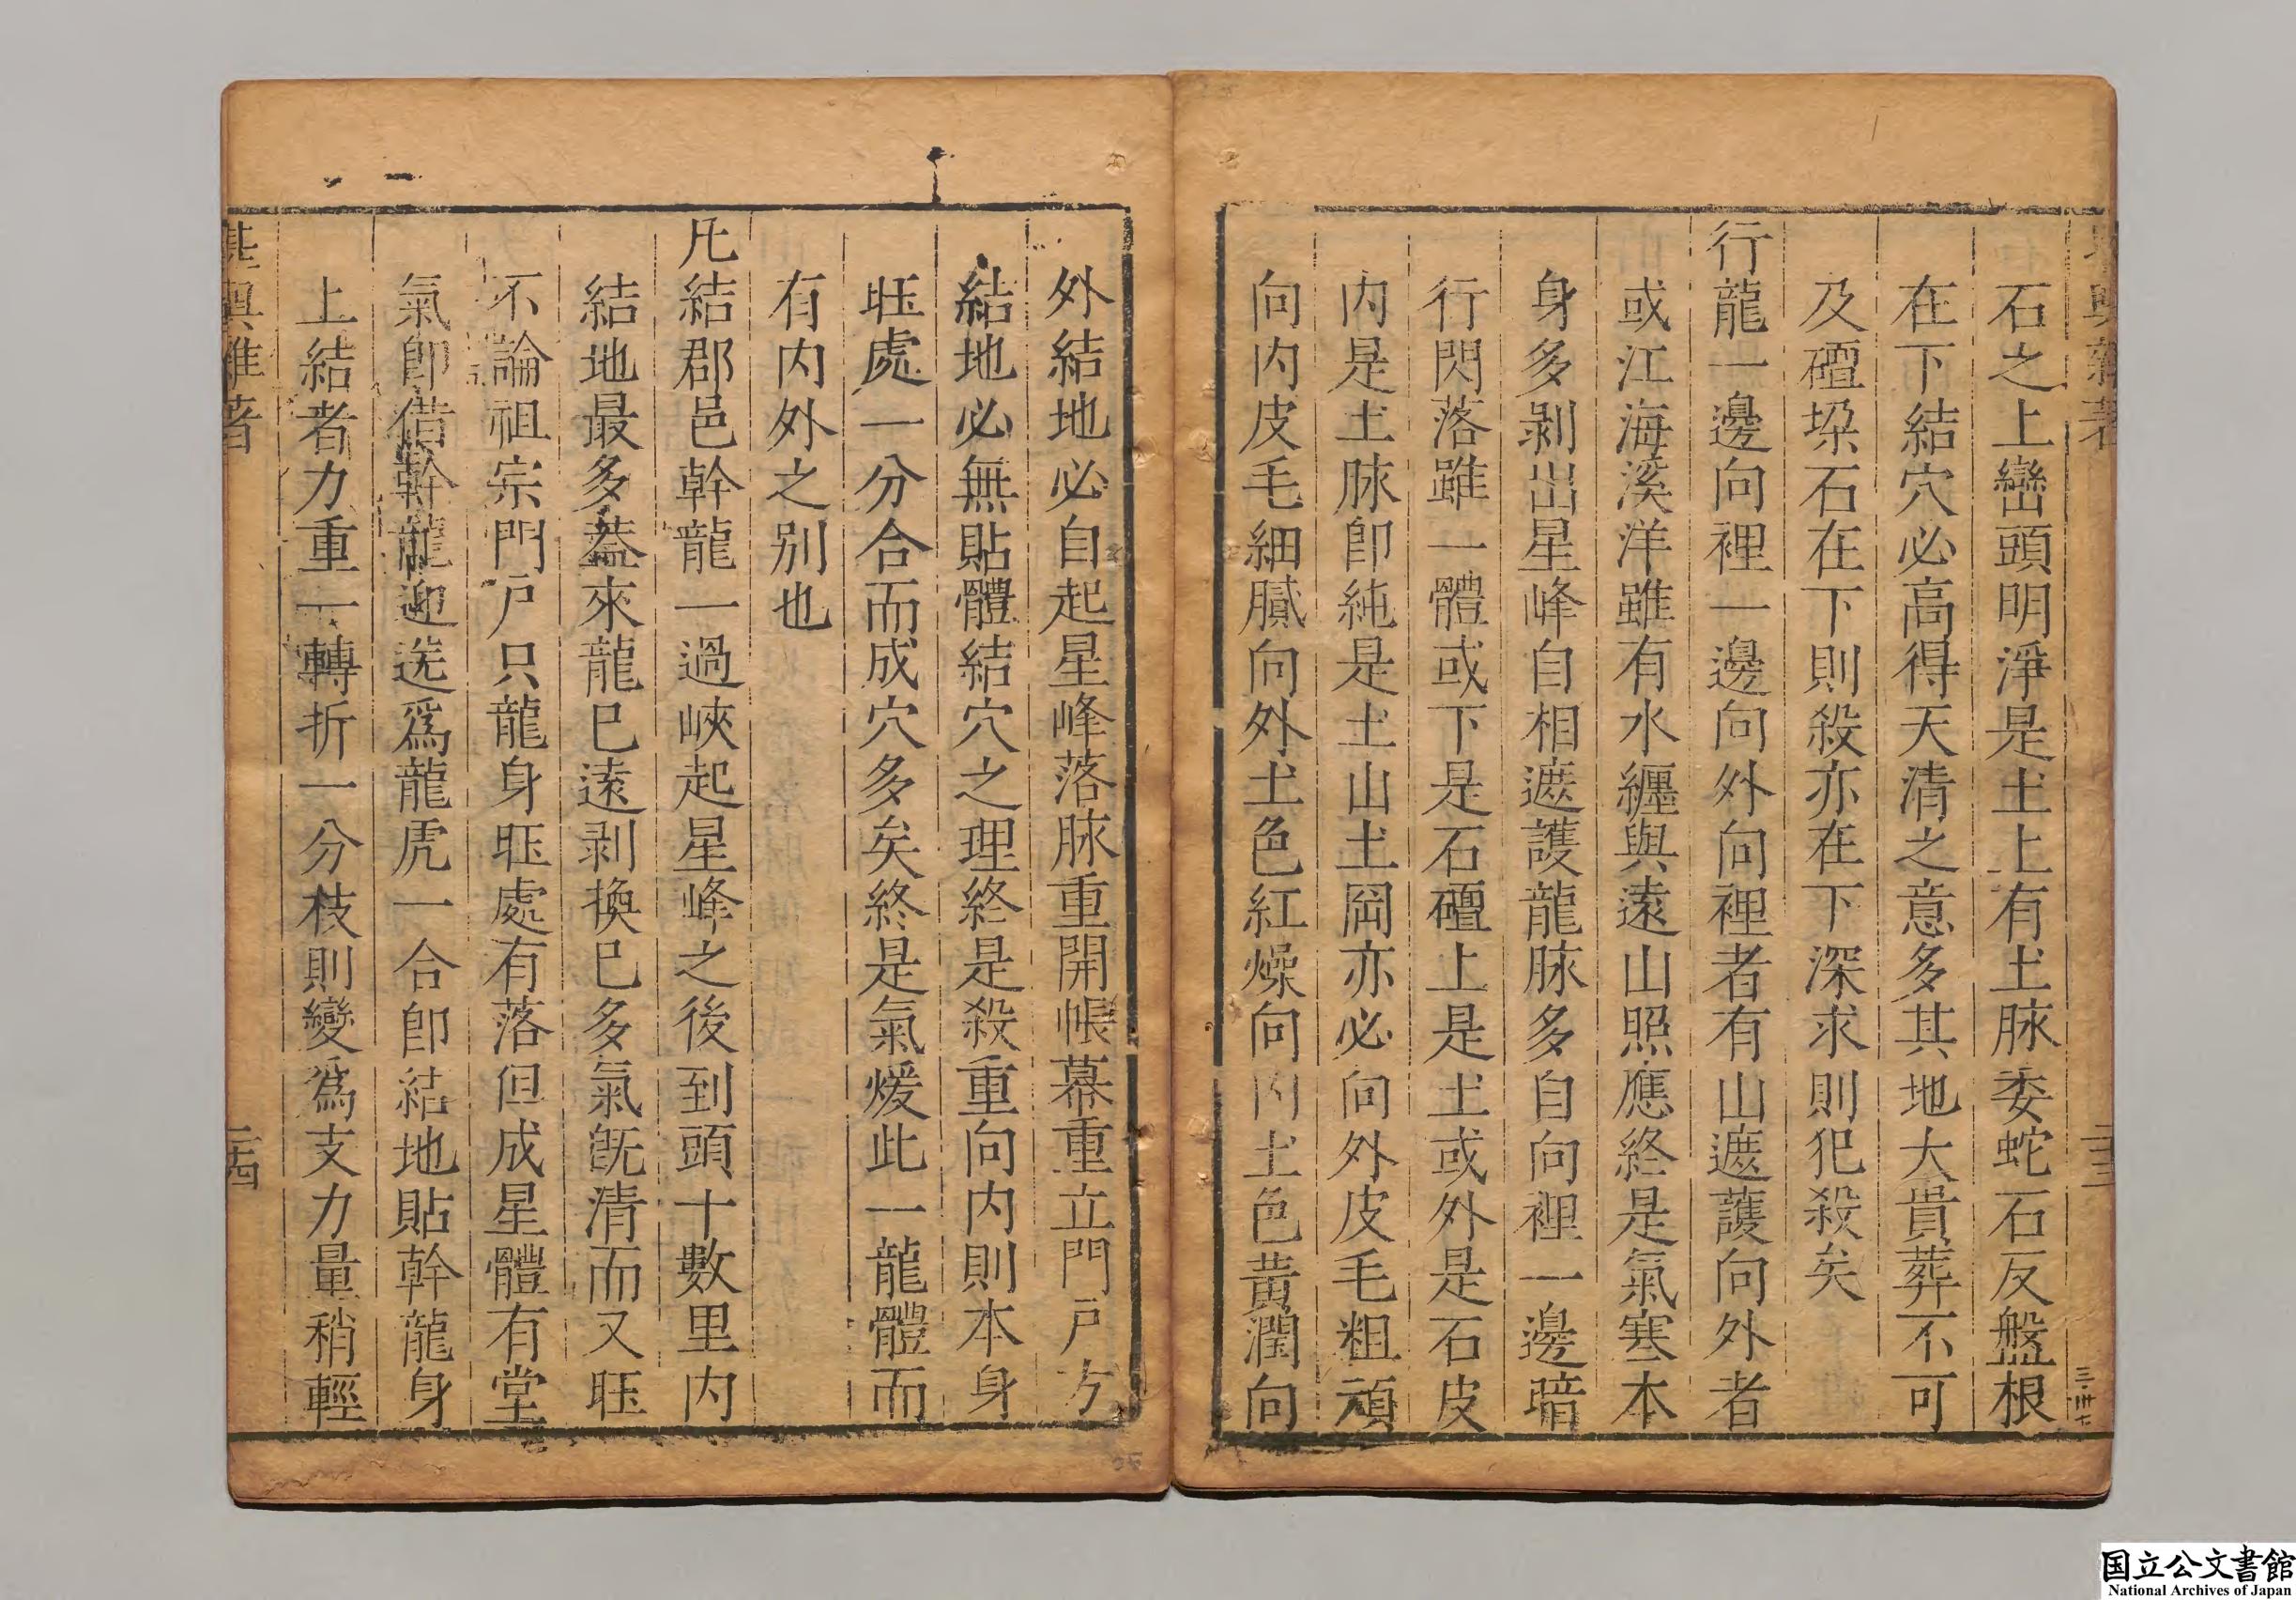 石之上巒頭明淨是土上有土脉委蛇石反盤根
在下結穴必高得天清之意多其地大貴葬不可
及礓垜石在下則殺亦在下深求則犯殺矣
行龍一邊向裡一邊向外向裡者有山遮護向外者
或江海溪洋雖有水纒與遠山照應終是氣寒本
身多剥出星峰自相遮護龍脉多自向裡一邊暗
行閃落雖一體或下是石礓上是土或外是石皮
内是土脉即純是土山土岡亦必向外皮毛粗頑
向内皮毛細膩向外土色紅燥向内土色黄潤向
外結地必自起星峰落脉重開帳幕重立門戶方
結地必無貼體結穴之理終是殺重向内則本身
眰處一分合而成穴多矣終是氣煖此一龍體而
有内外之别也
凡結郡邑幹龍一過峽起星峰之後到頭十數里内
結地最多葢來龍已遠剥換已多氣旣清而又眰
不論祖宗門戶只龍身眰處有落但成星體有堂
氣即借幹龍迎送爲龍虎一合即結地貼幹龍身
上結者力重一轉折一分枝則變爲支力量稍輕
二十四
国立公文書館
National Archives of Japan